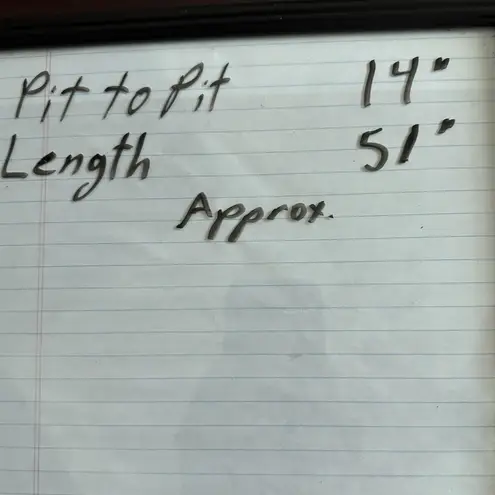 Pit to Pit 14"
Length 51"
Approx.